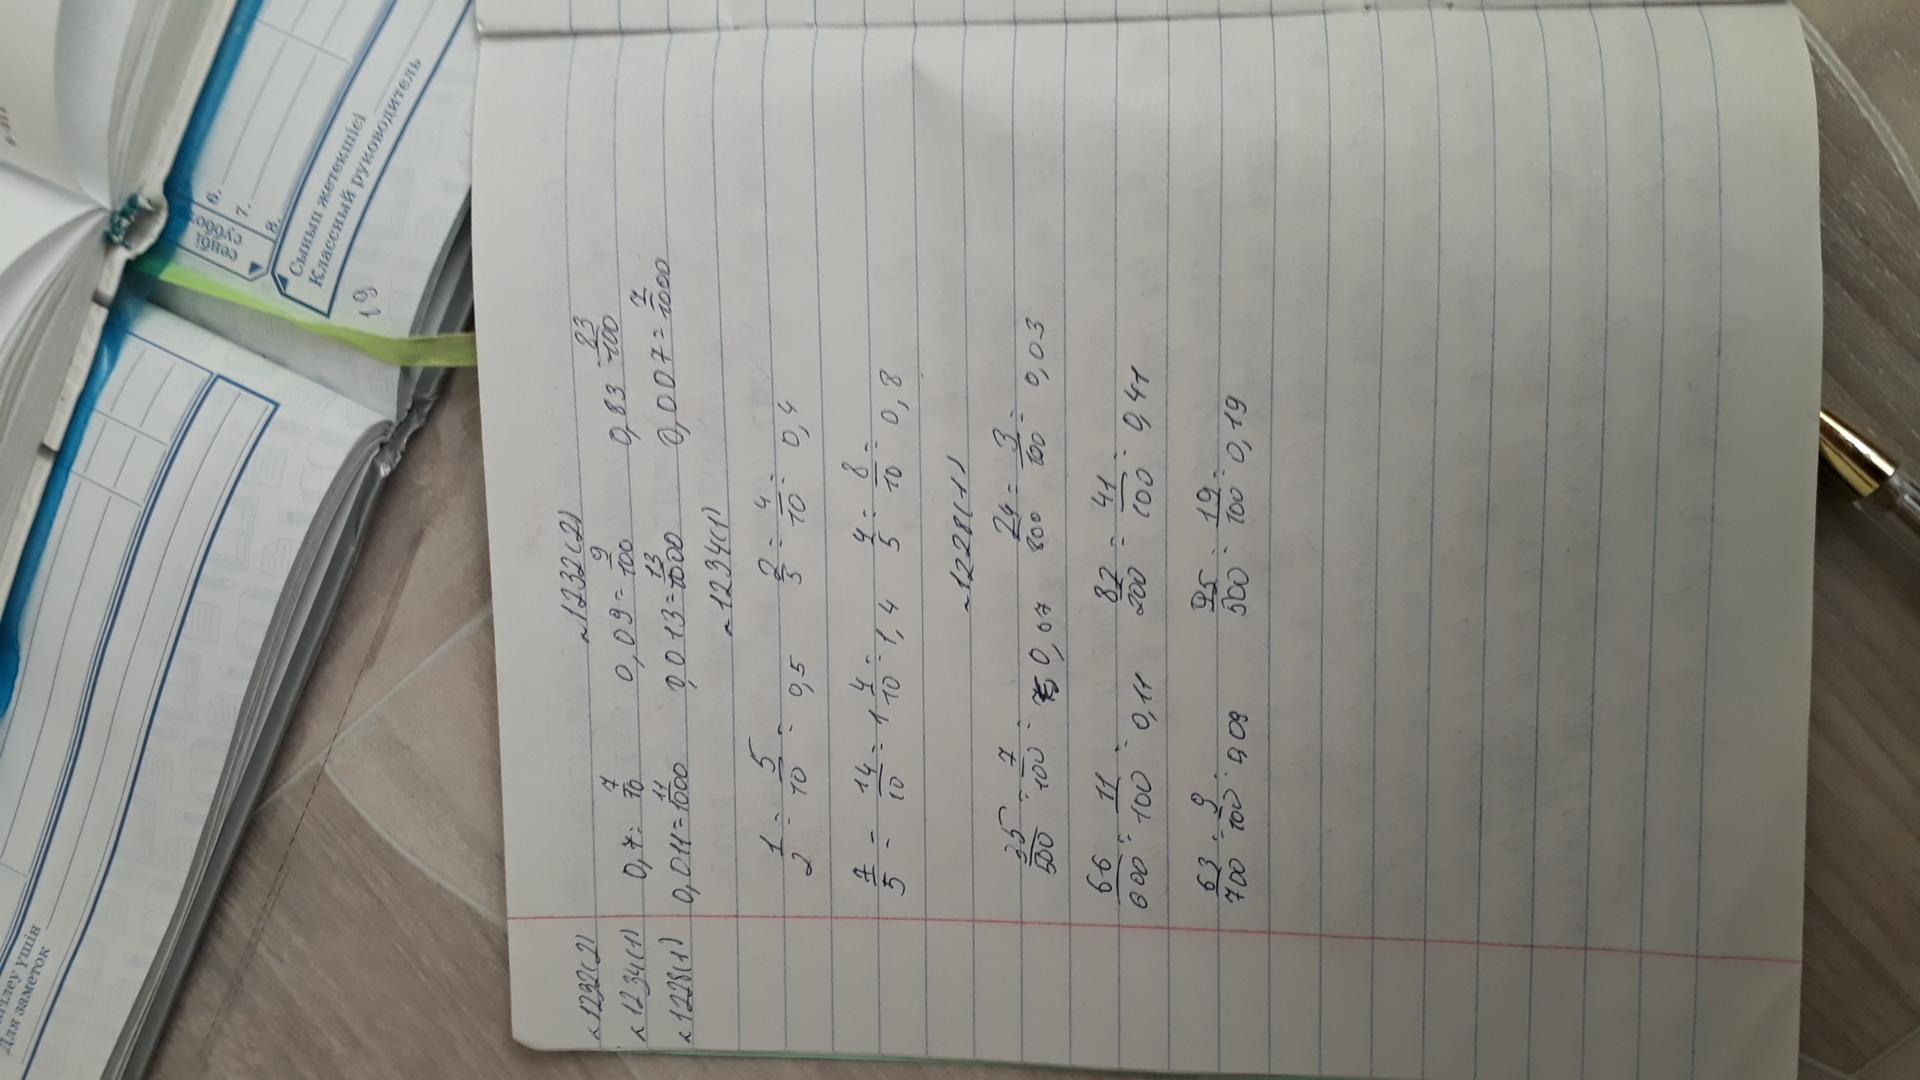 6.
7.
сенбі
суббо
8.
Сынып жетекшісі
Классный руководитель
19
үшін
Для заметок
№1232(2)
№1234(1)
№1228(1)
№1232(2)
0,7 = 7/10 0,09 = 9/100 0,83 83/100
0,011 = 11/1000 0,013 = 13/1000 0,007 = 7/1000
№1234(1)
1/2 = 5/10 = 0,5 2/5 = 4/10 = 0,4
7/5 = 14/10 = 1 4/10 = 1,4 4/5 = 8/10 = 0,8
№1228(1)
35/500 = 7/100 = 0,07 24/800 = 3/100 = 0,03
66/600 = 11/100 = 0,11 82/200 = 41/100 = 0,41
63/700 = 9/100 = 0,09 95/500 = 19/100 = 0,19